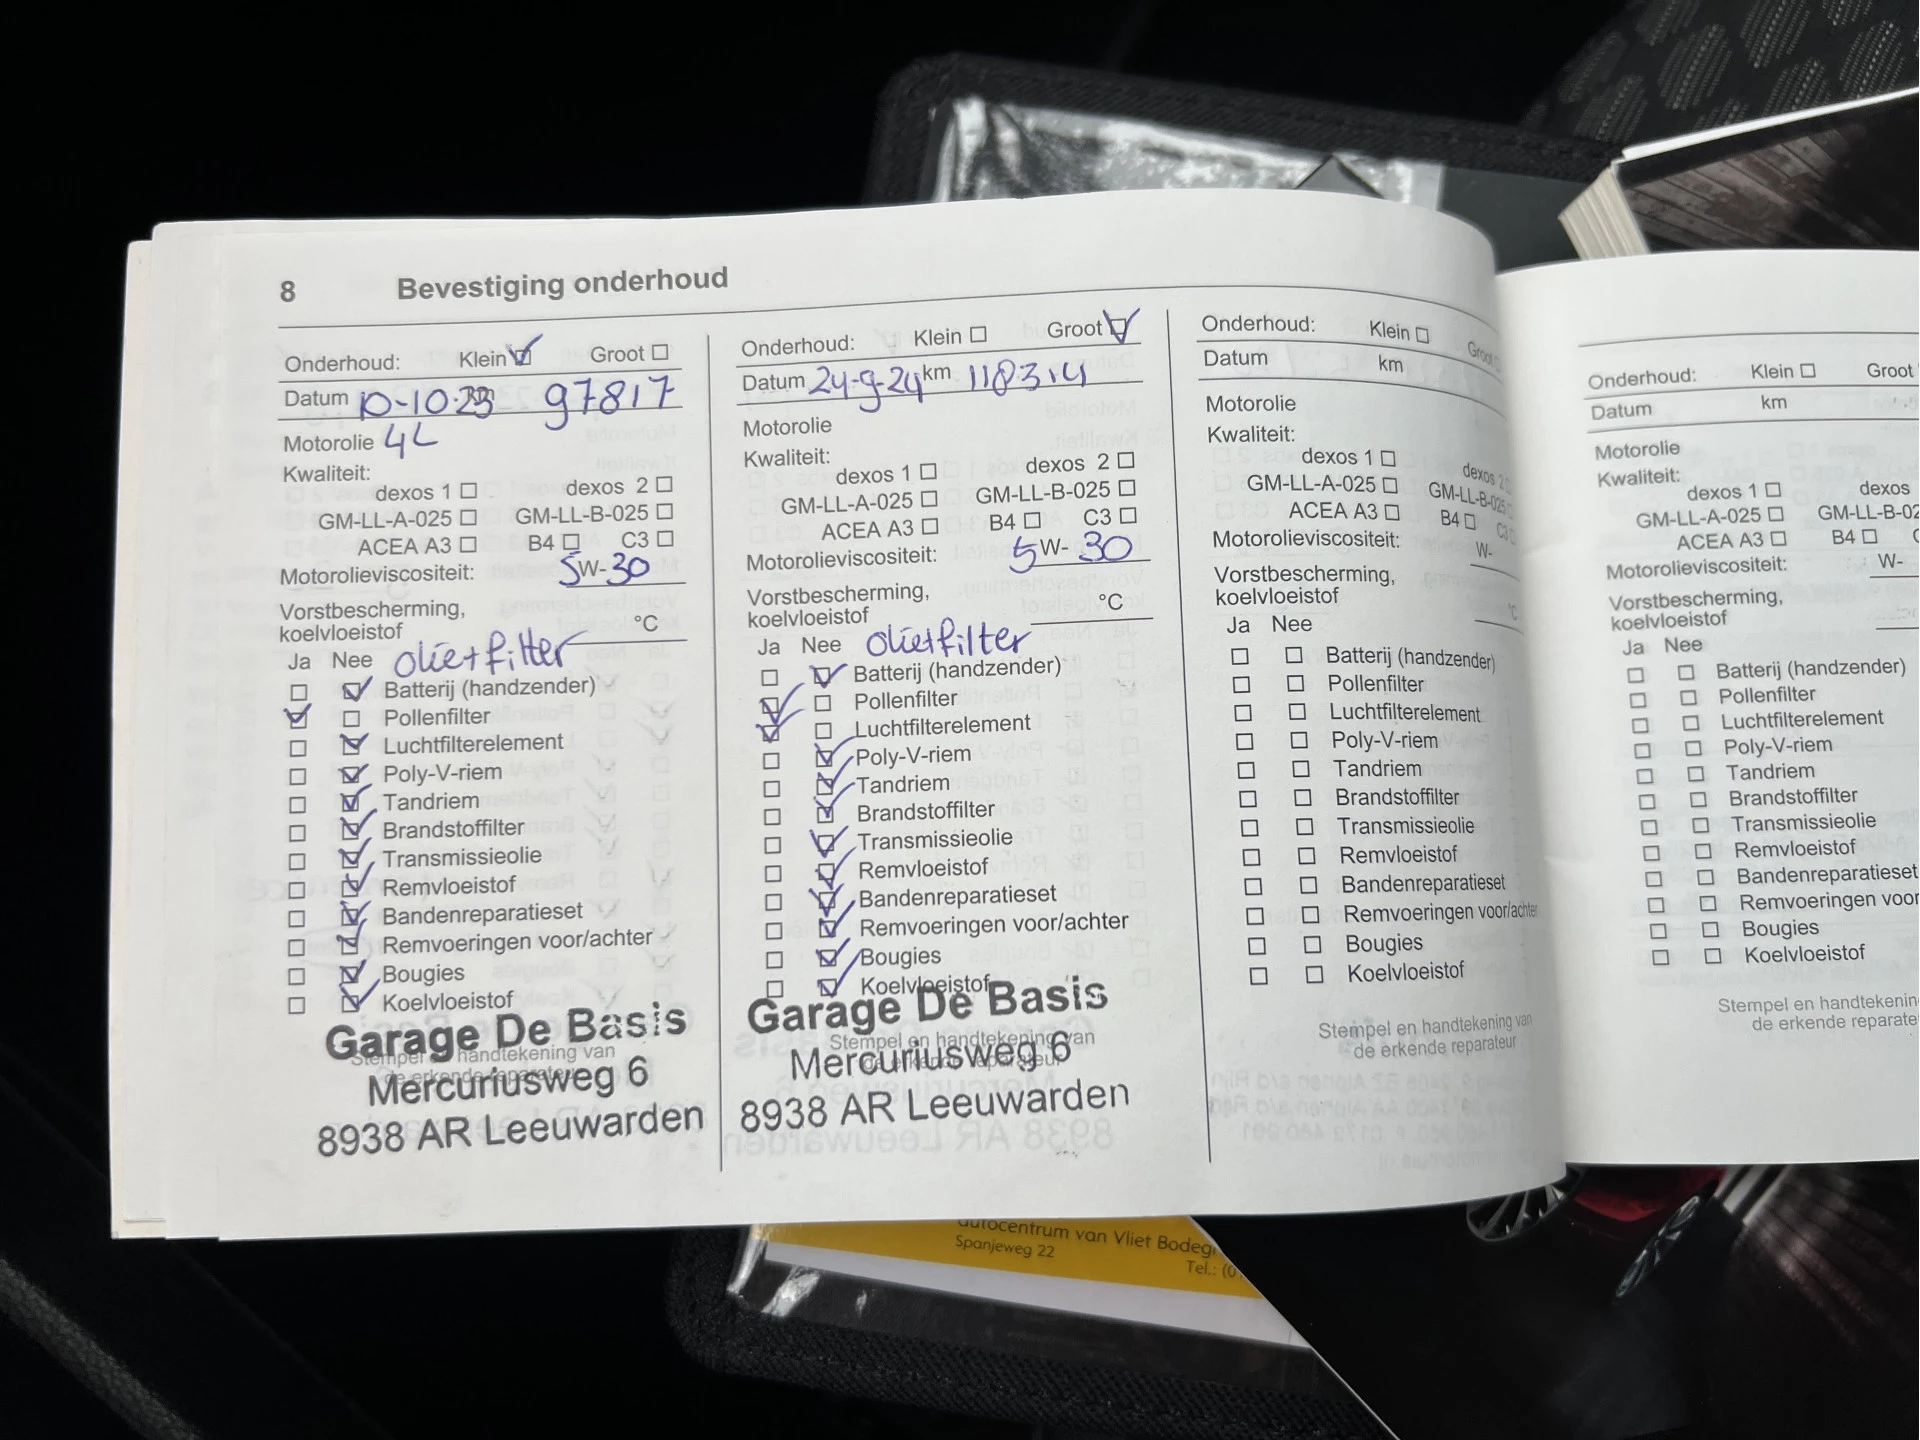 8 Bevestiging onderhoud
Onderhoud: Klein Groot
Datum 10-10-23 km 97817
Motorolie 4L
Kwaliteit:
dexos 1 dexos 2
GM-LL-A-025 GM-LL-B-025
ACEA A3 B4 C3
Motorolieviscositeit: 5W-30
Vorstbescherming,
koelvloeistof °C
Ja Nee olie+filter
Batterij (handzender)
Pollenfilter
Luchtfilterelement
Poly-V-riem
Tandriem
Brandstoffilter
Transmissieolie
Remvloeistof
Bandenreparatieset
Remvoeringen voor/achter
Bougies
Koelvloeistof
Stempel en handtekening van
de erkende reparateur
Garage De Basis
Mercuriusweg 6
8938 AR Leeuwarden
Onderhoud: Klein Groot
Datum 24-9-24 km 118314
Motorolie
Kwaliteit:
dexos 1 dexos 2
GM-LL-A-025 GM-LL-B-025
ACEA A3 B4 C3
Motorolieviscositeit: 5W-30
Vorstbescherming,
koelvloeistof °C
Ja Nee olie+filter
Batterij (handzender)
Pollenfilter
Luchtfilterelement
Poly-V-riem
Tandriem
Brandstoffilter
Transmissieolie
Remvloeistof
Bandenreparatieset
Remvoeringen voor/achter
Bougies
Koelvloeistof
Stempel en handtekening van
de erkende reparateur
Garage De Basis
Mercuriusweg 6
8938 AR Leeuwarden
Onderhoud: Klein Groot
Datum km
Motorolie
Kwaliteit:
dexos 1 dexos 2
GM-LL-A-025 GM-LL-B-025
ACEA A3 B4 C3
Motorolieviscositeit: W-
Vorstbescherming,
koelvloeistof °C
Ja Nee
Batterij (handzender)
Pollenfilter
Luchtfilterelement
Poly-V-riem
Tandriem
Brandstoffilter
Transmissieolie
Remvloeistof
Bandenreparatieset
Remvoeringen voor/achter
Bougies
Koelvloeistof
Stempel en handtekening van
de erkende reparateur
Onderhoud: Klein Groot
Datum km
Motorolie
Kwaliteit:
dexos 1 dexos
GM-LL-A-025 GM-LL-B-02
ACEA A3 B4
Motorolieviscositeit: W-
Vorstbescherming,
koelvloeistof
Ja Nee
Batterij (handzender)
Pollenfilter
Luchtfilterelement
Poly-V-riem
Tandriem
Brandstoffilter
Transmissieolie
Remvloeistof
Bandenreparatieset
Remvoeringen voor
Bougies
Koelvloeistof
Stempel en handtekenin
de erkende reparate
autocentrum van Vliet Bodeg
Spanjeweg 22
Tel.: (0